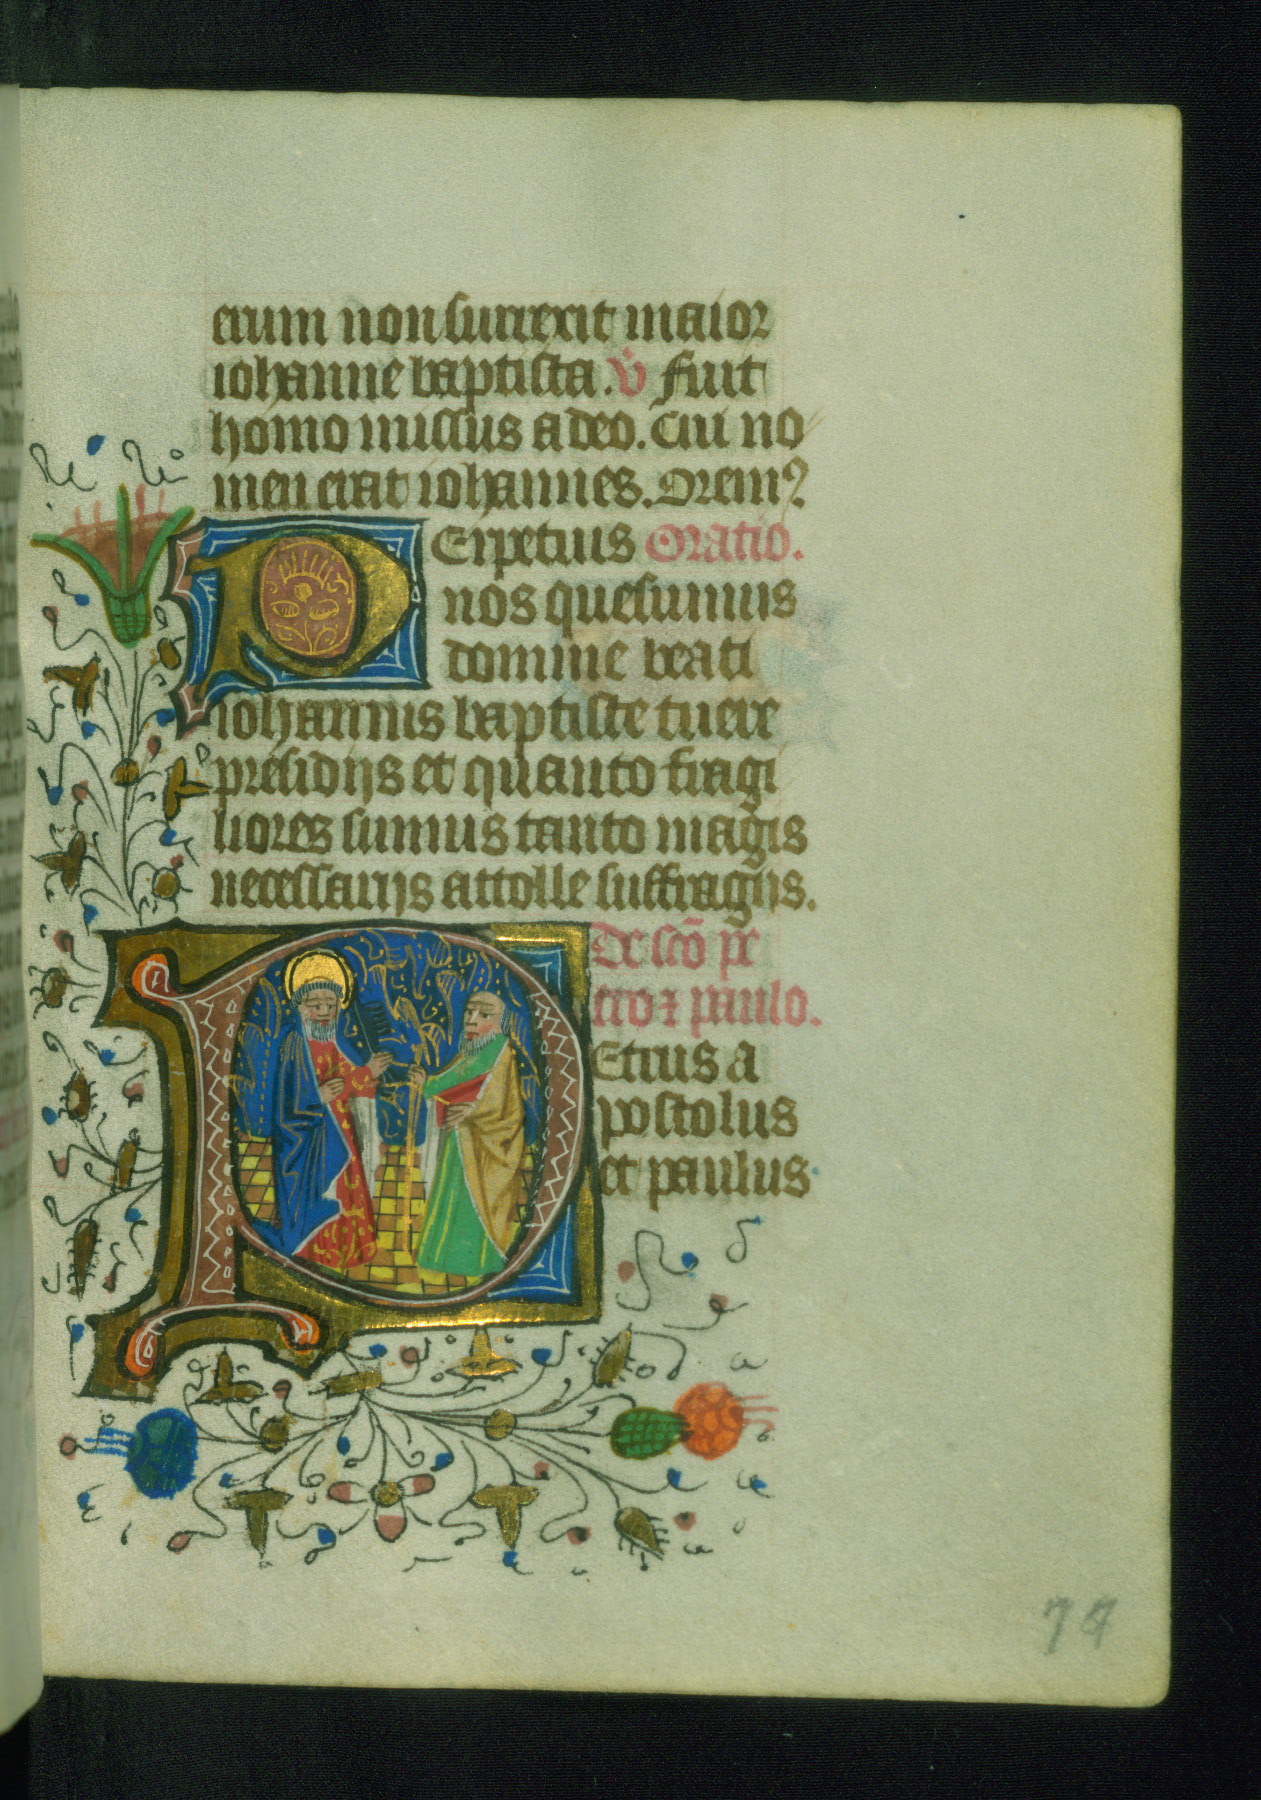 erum non surrexit maior
iohanne baptista. V̇ Fuit
homo missus a deo. Cui no
men erat iohannes. Orem⁹
PErpetuis Oratio.
nos quesumus
domine beati
iohannis baptiste tuere
presidijs et quanto fragi
liores sumus tanto magis
necessarijs attolle suffragijs.
De scō pe
tro ⁊ paulo.
PEtrus a
postolus
et paulus